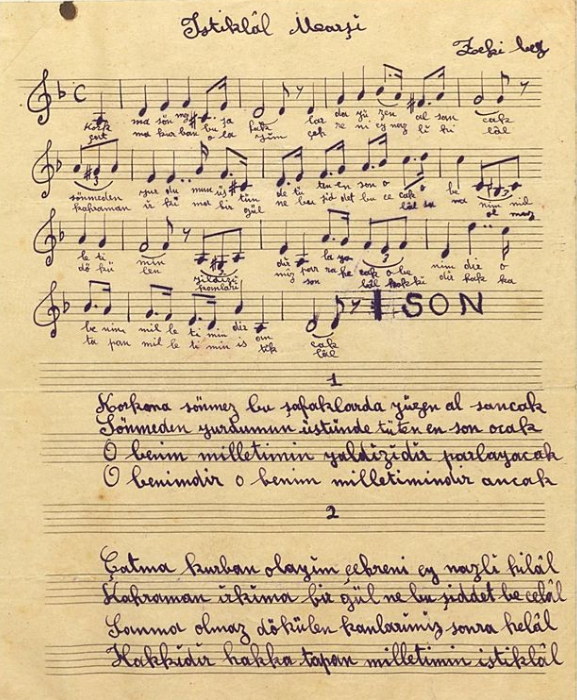 İstiklâl Marşi
Zeki bey
C
Kork ma sön mez bu şa fak lar da yü zen al san cak
ma kur ban o la yim çeh re ni ey naz li hi lâl
sönmeden yur du mun üs tün de tü ten en son o cak
kahraman ır ki ma bir gül ne bu şid det bu ce lâl
be nim mil
ol maz
le ti min yildizi dir
dö kü len
son
o be nim dir o
hak ki dir hak ka
be nim mil le ti min dir an cak
ta pan mil le ti min is tik lâl
SON
1
Korkma sönmez bu şafaklarda yüzen al sancak
Sönmeden yurdumun üstünde tüten en son ocak
O benim milletimin yaldizidir parlayacak
O benimdir o benim milletimindir ancak
2
Çatma kurban olayim çehreni ey nazli hilâl
Kahraman ırkima bir gül ne bu şiddet be celâl
Sanma olmaz dökülen kanlarimiz sonra helâl
Hakkidir hakka tapan milletimin istiklâl